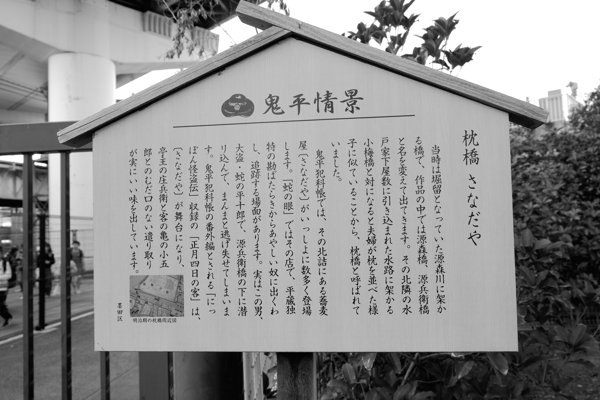 鬼平情景
枕橋 さなだや
当時は堀留となっていた源森川に架か
る橋で、作品の中では源森橋、源兵衛橋
と名を変えて出てきます。その北隣の水
戸家下屋敷に引き込まれた水路に架かる
小梅橋と対になると夫婦が枕を並べた様
子に似ていることから、枕橋と呼ばれて
いました。
鬼平犯科帳では、その北詰にある蕎麦
屋〔さなだや〕がいっしょに数多く登場
します。「蛇の眼」ではその店で、平蔵独
特の勘ばたらきからあやしい奴に出くわ
し、追跡する場面があります。実はこの男、
大盗・蛇の平十郎で、源兵衛橋の下に潜
り込んで、まんまと逃げ失せてしまいま
す。鬼平犯科帳の番外編とされる「にっ
ぽん怪盗伝」収録の「正月四日の客」は、
〔さなだや〕が舞台になり、
亭主の庄兵衛と客の亀の小五
郎とのむだ口のない遣り取り
が実にいい味を出しています。
明治期の枕橋周辺図
墨田区